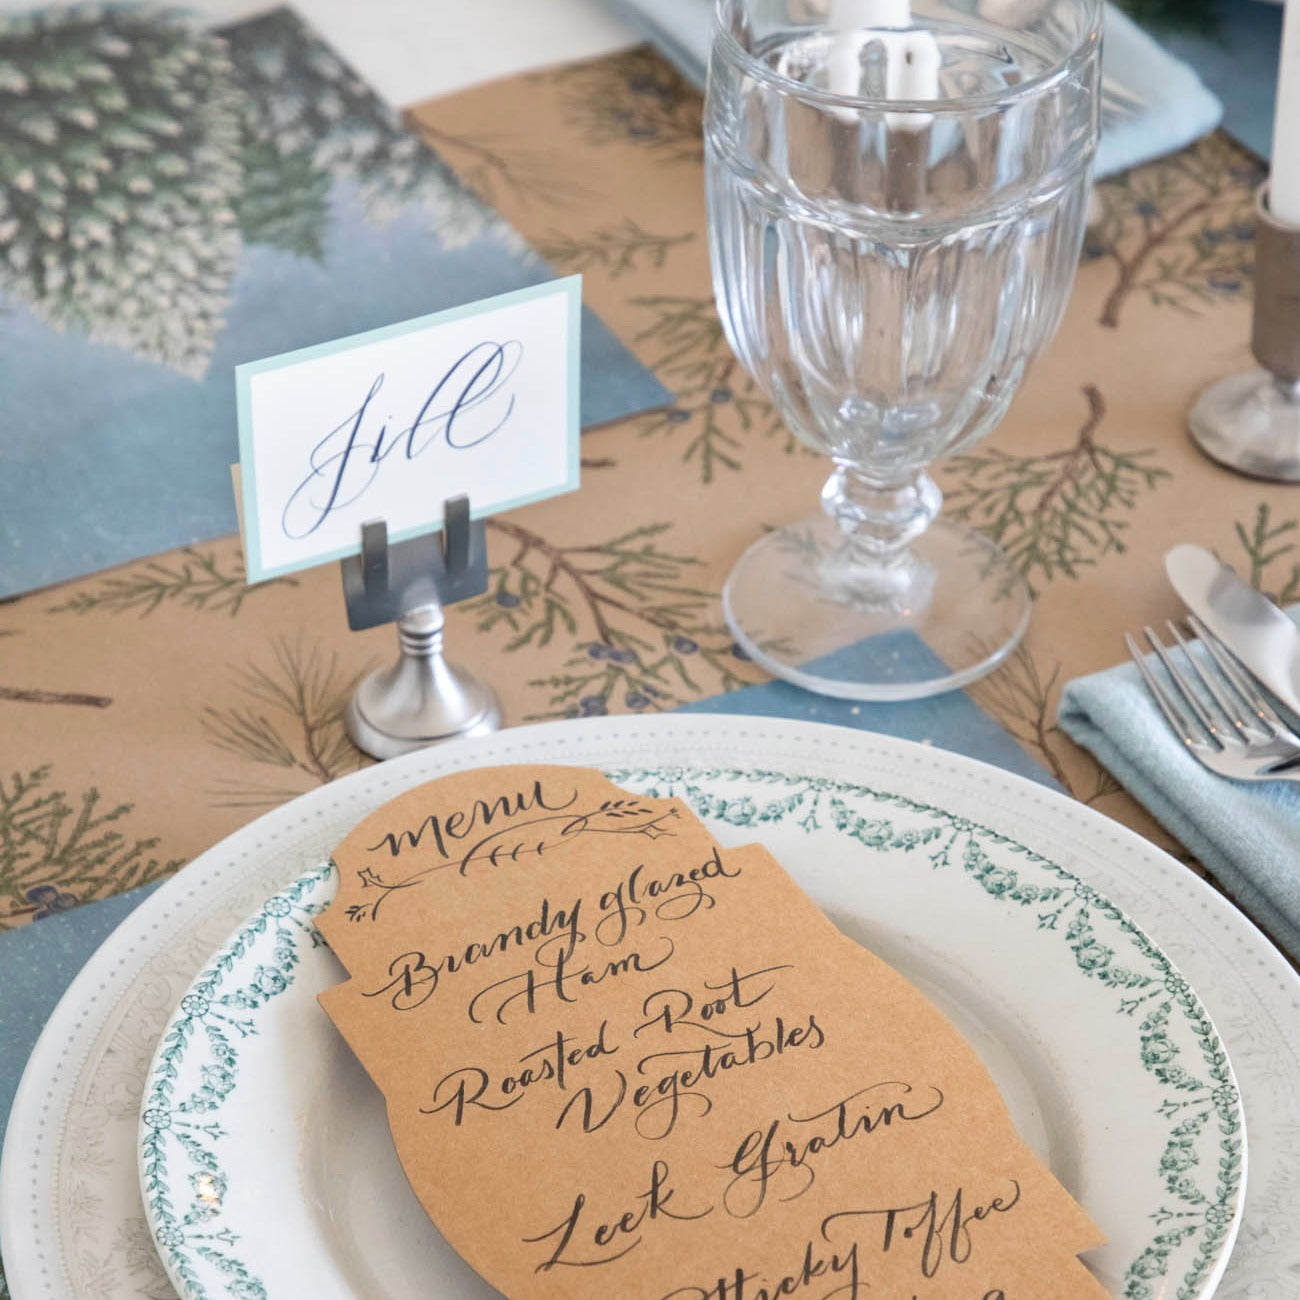 Jill
menu
Brandy glazed
Ham
Roasted Root
Vegetables
Leek Gratin
Sticky Toffee